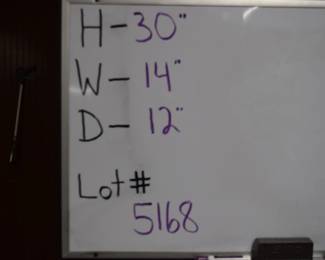 H-30"
W-14"
D-12"
Lot#
5168